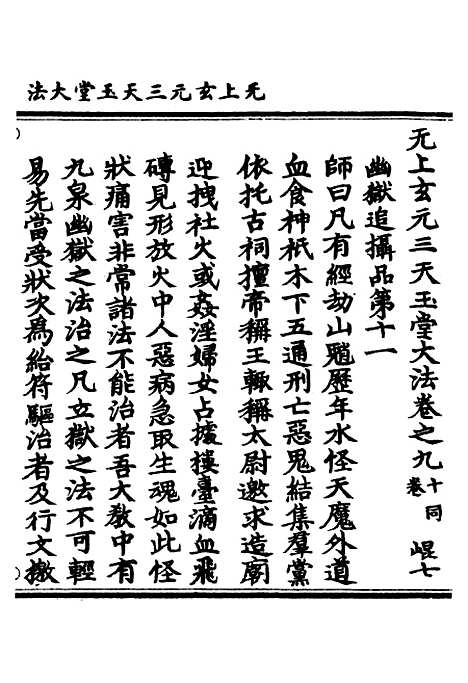 無上玄元三天玉堂大法
无上玄元三天玉堂大法卷之九十同卷 崐七
幽獄追攝品第十一
師曰凡有經劫山魈歷年水怪天魔外道
血食神祇木下五通刑亡惡鬼結集羣黨
依托古祠擅帝稱王輙稱太尉邀求造廟
迎拽社火或姦淫婦女占據樓臺滴血飛
磚見形放火中人惡病急取生魂如此怪
狀痛害非常諸法不能治者吾大教中有
九泉幽獄之法治之凡立獄之法不可輕
易先當受狀次為給符驅治者及行文檄